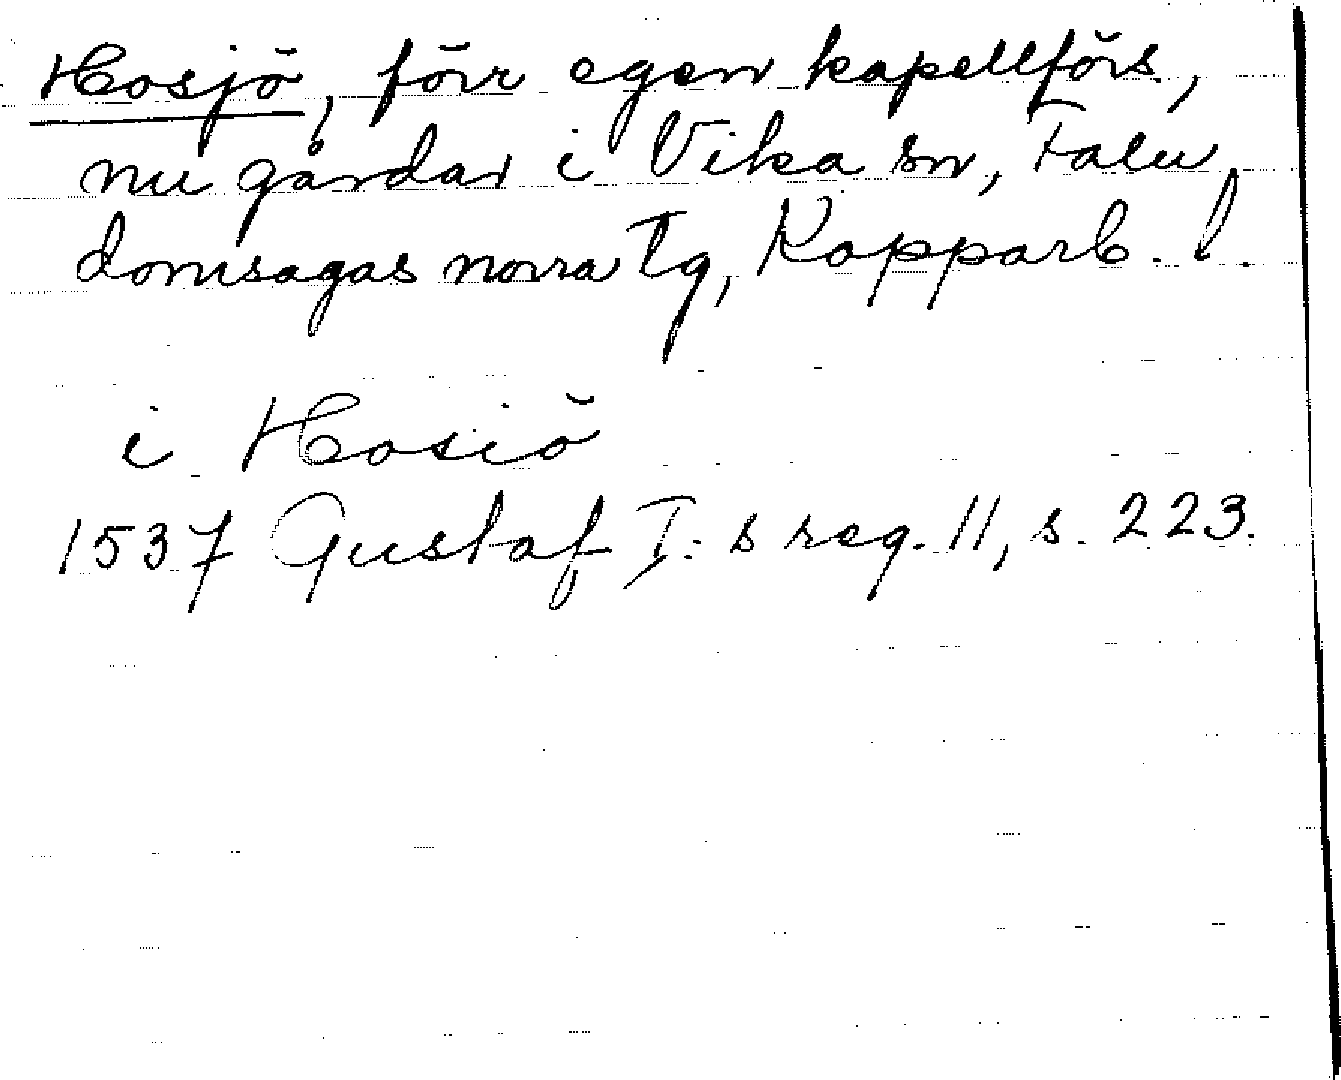 Hosjö, förr egen kapellförs,
nu gårdar i Vika sn, Falu
domsagas norra tg, Kopparb. l.
i Hosiö
1537 Gustaf I:s reg. 11, s. 223.